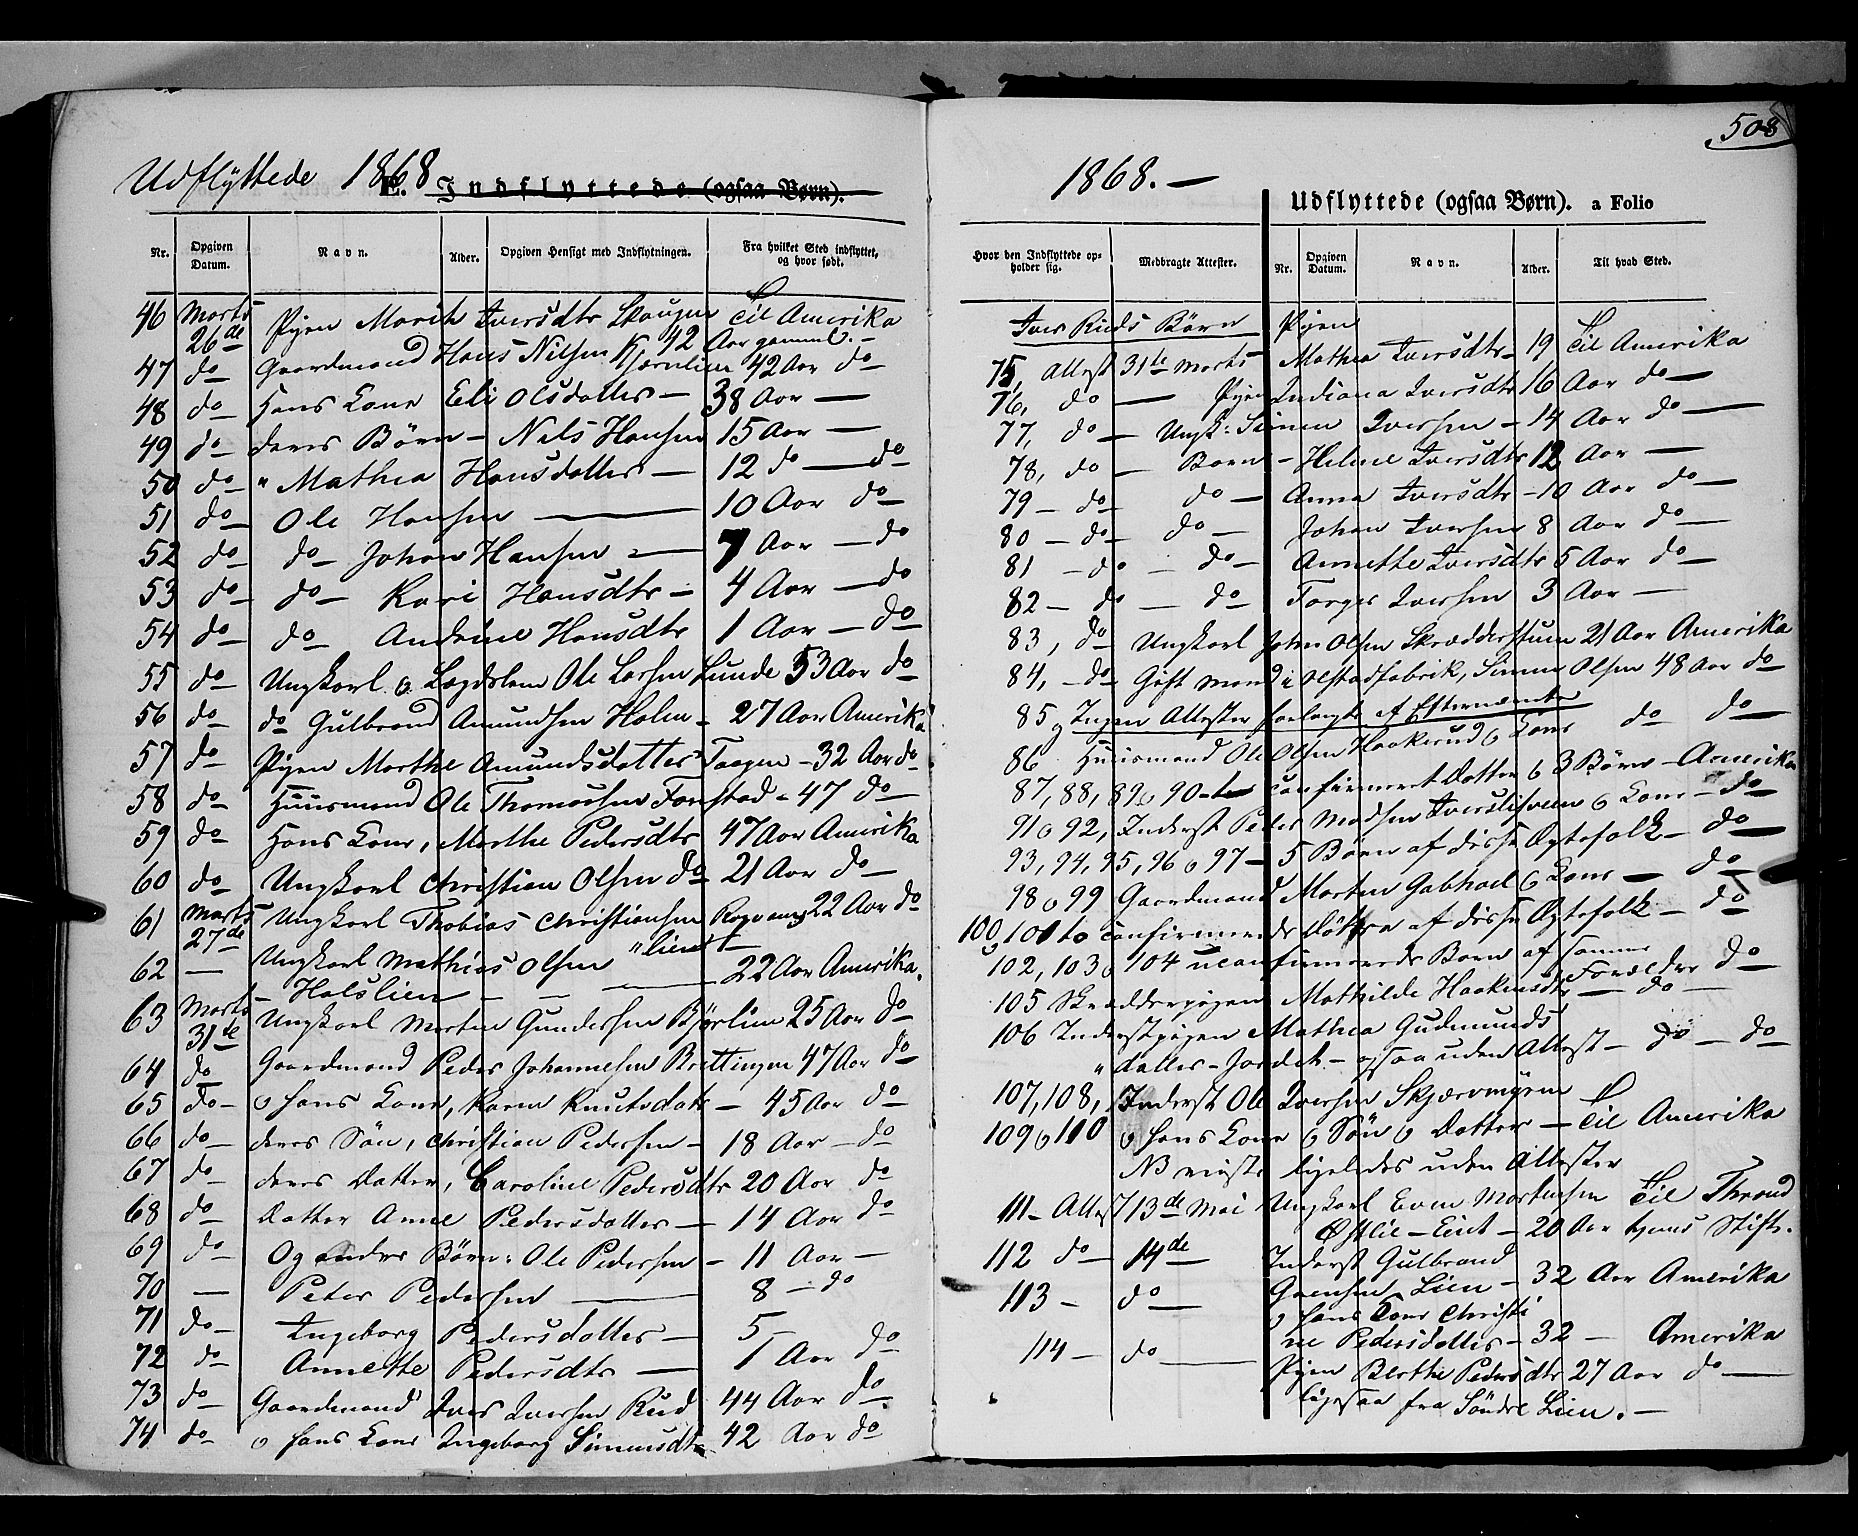 Udflyttede 1868.
E. Indflyttede (ogsaa Børn).
Nr. Opgiven Datum. Navn. Alder. Opgiven Hensigt med Indflytningen. Fra hvilket Sted indflyttet, og hvor født.
46 Marts 26de Pigen Marith Iversdtr Skaugen Til Amerika
42 Aar gammel. —
47 do Gaardmand Hans Nilsen Kjærnlien 42 Aar do
48 do Hans Kone Eli Olsdatter — 38 Aar —
49 do deres Børn — Nils Hansen 15 Aar —
50 do — " Mathea Hansdatter — 12 do — do
51 do — Ole Hansen — 10 Aar do
52 do do — Johan Hansen — 7 Aar — do
53 do — do — Kari Hansdtr — 4 Aar — do
54 do — do — Andrine Hansdtr 1 Aar — do
55 do — Ungkarl o Lægdslem Ole Larsen Lunde 53 Aar do
56 do do Gulbrand Amundsen Holm — 27 Aar Amerika
57 do Pigen Marthe Amundsdatter Taagen — 32 Aar do
58 do Huusmand Ole Thomassen Fonstad — 47 do —
59 do Hans Kone, Marthe Pedersdtr 47 Aar Amerika
60 do Ungkarl Christian Olsen do 21 Aar do —
61 Marts 27de Ungkarl Thobias Christiansen 22 Aar do
62 — Ungkarl Mathias Olsen "lien
Holslien — — — 22 Aar Amerika.
63 Marts 31te Ungkarl Morten Gundersen Bjørlien 25 Aar do
64 do Gaardmand Peder Johannesen Brettingen 47 Aar do
65 do — o hans Kone, Karen Knutsdatr — 45 Aar do
66 do — deres Søn, Christian Pedersen — 18 Aar — do
67 do deres Datter, Caroline Pedersdtr 20 Aar do
68 do — Datter Anne Pedersdatter — 14 Aar do
69 do Og andre Børn: Ole Pedersen — 11 Aar —
70 — Peter Pedersen — 8 — do
71 do — Ingeborg Pedersdatter — 5
72 do Annette Pedersdtr — 1 Aar do
73 do Gaardmand Iver Iversen Rud 44 Aar do
74 do o hans Kone Ingeborg Simensdtr 42 Aar do
508
1868. —
Udflyttede (ogsaa Børn). a Folio
Hvor den Indflyttede opholder sig. Medbragte Attester. Nr. Opgiven Datum. Navn. Alder. Til hvad Sted.
Iver Ruds Børn Pigen
75, Attest 31te Marts Mathea Iversdtr — 19 Til Amerika
76, do — Pigen Indiana Iversdtr 16 Aar do —
77, do — Ungk: Simen Iversen — 14 Aar do —
78, do — Barn — Helene Iversdtr 12 Aar —
79 — do do — Anna Iversdtr — 10 Aar do —
80 — do — do — Johan Iversen 8 Aar do —
81 — do — do — Annette Iversdtr 5 Aar do —
82 — do — do Torger Iversen 3 Aar —
83, do Ungkarl Johan Olsen Skrædderstuen 21 Aar Amerika
84, — do Gift Mand i Olstadfabrik, Simen Olsen 48 Aar do
85 o Ingen Attester forlangte af Efternævnte
86 Huusmand Ole Olsen Haakerud o Kone do do —
87, 88, 89 o 90 — to confirmert Datter o 3 Børn — Amerika
91 o 92, Inderst Peder Madsen Iverslisveen o Kone — do
93, 94, 95, 96 o 97 — 5 Børn af disse Ægtefolk — do
98 o 99 Gaardmand Morten Gabhoel o Kone — do
100 o 101 to confirmerede Døttre af disse Ægtefolk — do
102, 103 o 104 uconfirmerede Børn af samme Forældre do
105 Skrædderpigen Mathilde Haakensdtr — do —
106 Inderstpigen Mathea Gudmunds
" datter — Jordet — ogsaa uden Attest — do — do
107, 108, Inderst Ole Iversen Skjærvmyren
109 o 110 o hans Kone o Søn o Datter — Til Amerika
NB reiste ligeledes uden Attester
111 — Attest 13de Mai Ungkarl Even Mortensen Til Thrond
Østlie — Eiet — 20 Aar hjems Stift.
112 do — 14de Inderst Gulbrand
Lien — 32 Aar Amerika
113 — do — o hans Kone Christi
ne Pedersdatter — 32 — Amerika
114 — do — Pigen Berthe Pedersdtr 27 Aar do —
ligesaa fra Søndre Lien. —